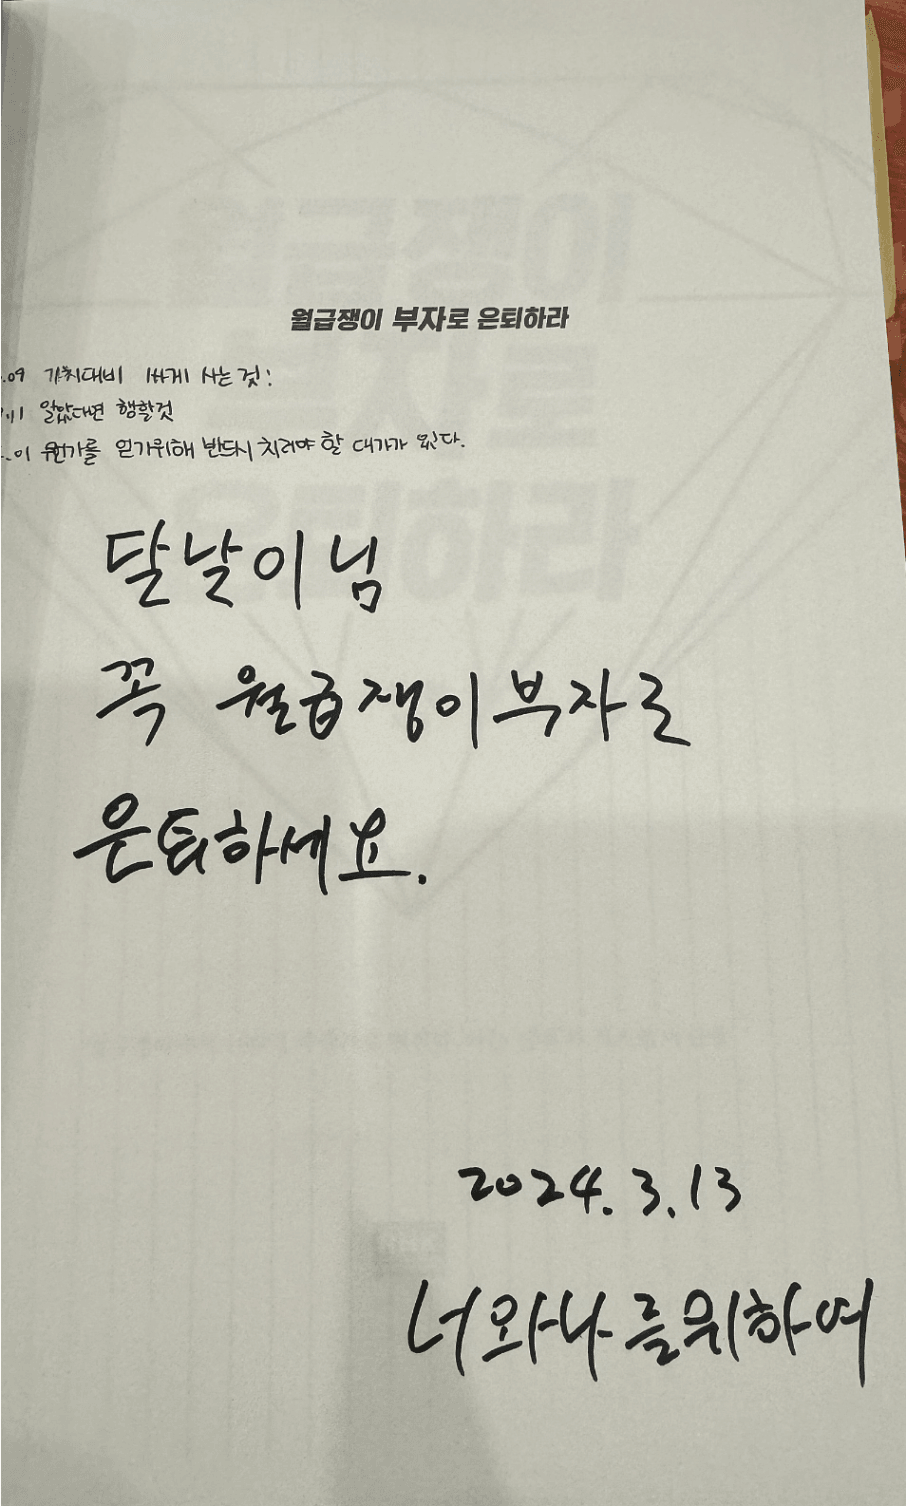 월급쟁이 부자로 은퇴하라
.09 가치대비 싸게 사는것:
11 알았다면 행할것
.이 뭔가를 얻기위해 반드시 치러야 할 대가가 있다.
달날이님
꼭 월급쟁이부자로
은퇴하세요.
2024.3.13
너와나를위하여